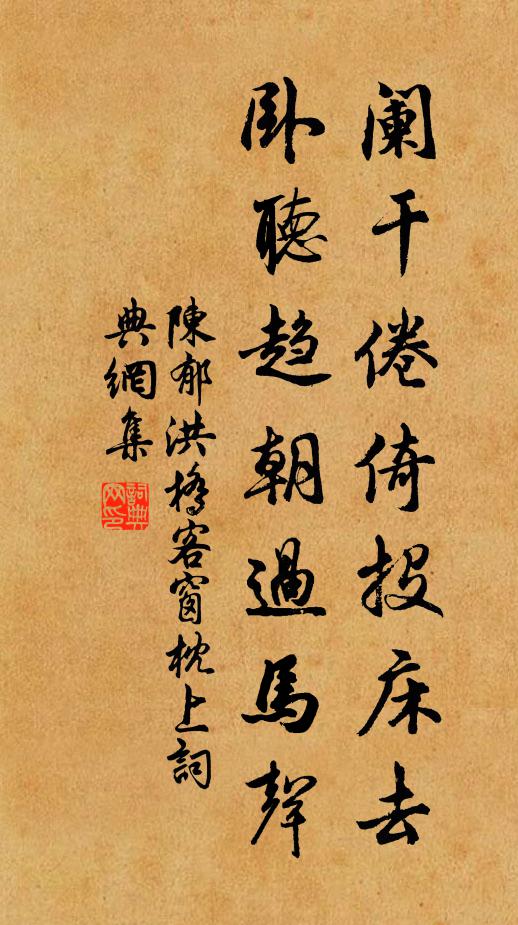 阑干倦倚投床去
卧聽趋朝過馬聲
陳郁洪橋客窗枕上詞
典網集
詞典
网印